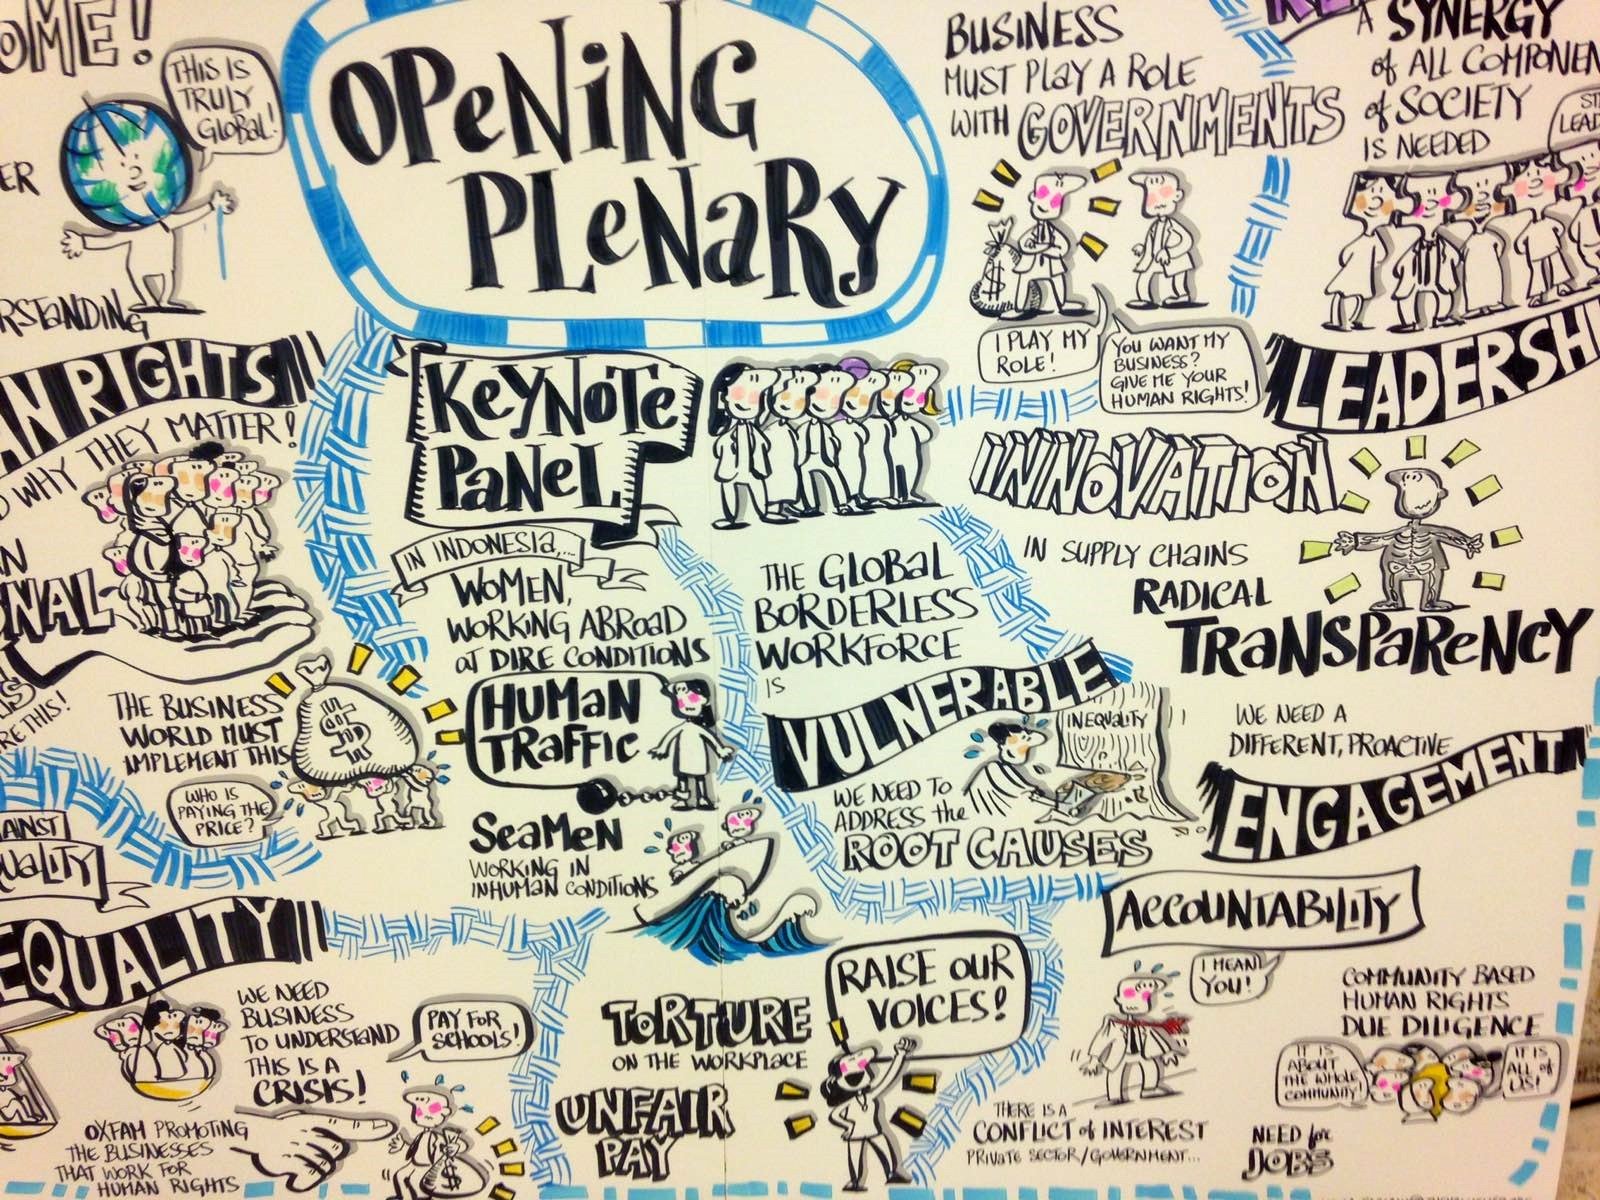 OME!
THIS IS
TRULY
GLOBAL!
ER
RSTANDING
OPENING
PLENARY
BUSINESS
MUST PLAY A ROLE
WITH GOVERNMENTS
I PLAY MY
ROLE!
YOU WANT MY
BUSINESS?
GIVE ME YOUR
HUMAN RIGHTS!
A SYNERGY
of ALL COMPONEN
of SOCIETY
IS NEEDED
ST
LEAD
LEADERSH
N RIGHTS
WHY THEY MATTER!
AN
NAL
RE THIS!
THE BUSINESS
WORLD MUST
IMPLEMENT THIS
$
WHO IS
PAYING THE
PRICE?
AINST
QUALITY
KEYNOTE
PANEL
IN INDONESIA,...
WOMEN,
WORKING ABROAD
at DIRE CONDITIONS
HUMAN
TRAFFIC
SEAMEN
WORKING IN
INHUMAN CONDITIONS
THE GLOBAL
BORDERLESS
WORKFORCE
IS
VULNERABLE
INEQUALITY
WE NEED TO
ADDRESS the
ROOT CAUSES
INNOVATION
IN SUPPLY CHAINS
RADICAL
TRANSPARENCY
WE NEED A
DIFFERENT, PROACTIVE
ENGAGEMENT
EQUALITY
WE NEED
BUSINESS
TO UNDERSTAND
THIS IS A
CRISIS!
PAY FOR
SCHOOLS!
OXFAM PROMOTING
THE BUSINESSES
THAT WORK FOR
HUMAN RIGHTS
$
TORTURE
ON THE WORKPLACE
UNFAIR
PAY
RAISE OUR
VOICES!
ACCOUNTABILITY
I MEAN
YOU!
THERE IS A
CONFLICT of INTEREST
PRIVATE SECTOR/GOVERNMENT...
COMMUNITY BASED
HUMAN RIGHTS
DUE DILIGENCE
IT IS
ABOUT
THE WHOLE
COMMUNITY!
IT IS
ALL of
US!
NEED for
JOBS